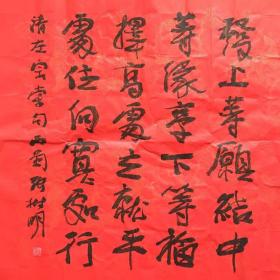 發上等願結中
等緣享下等福
擇高處立就平
處住向寬處行
清左宗棠句
樹明